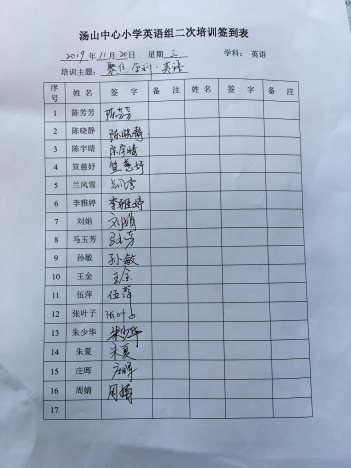 汤山中心小学英语组二次培训签到表
2019年11月20日 星期三 学科：英语
培训主题：聚焦学科·英语
序号 姓名 签字 备注 签字 备注
1 陈芳芳 陈芳芳
2 陈晓静 陈晓静
3 陈宇晴 陈宇晴
4 笪慈妤 笪慈妤
5 兰风雪
6 李雅婷 李雅婷
7 刘娟 刘娟
8 马玉芳 马玉芳
9 孙敏 孙敏
10 王金 王金
11 伍萍 伍萍
12 张叶子 张叶子
13 朱少华 朱少华
14 朱夏 朱夏
15 庄晖 庄晖
16 周婧 周婧
17